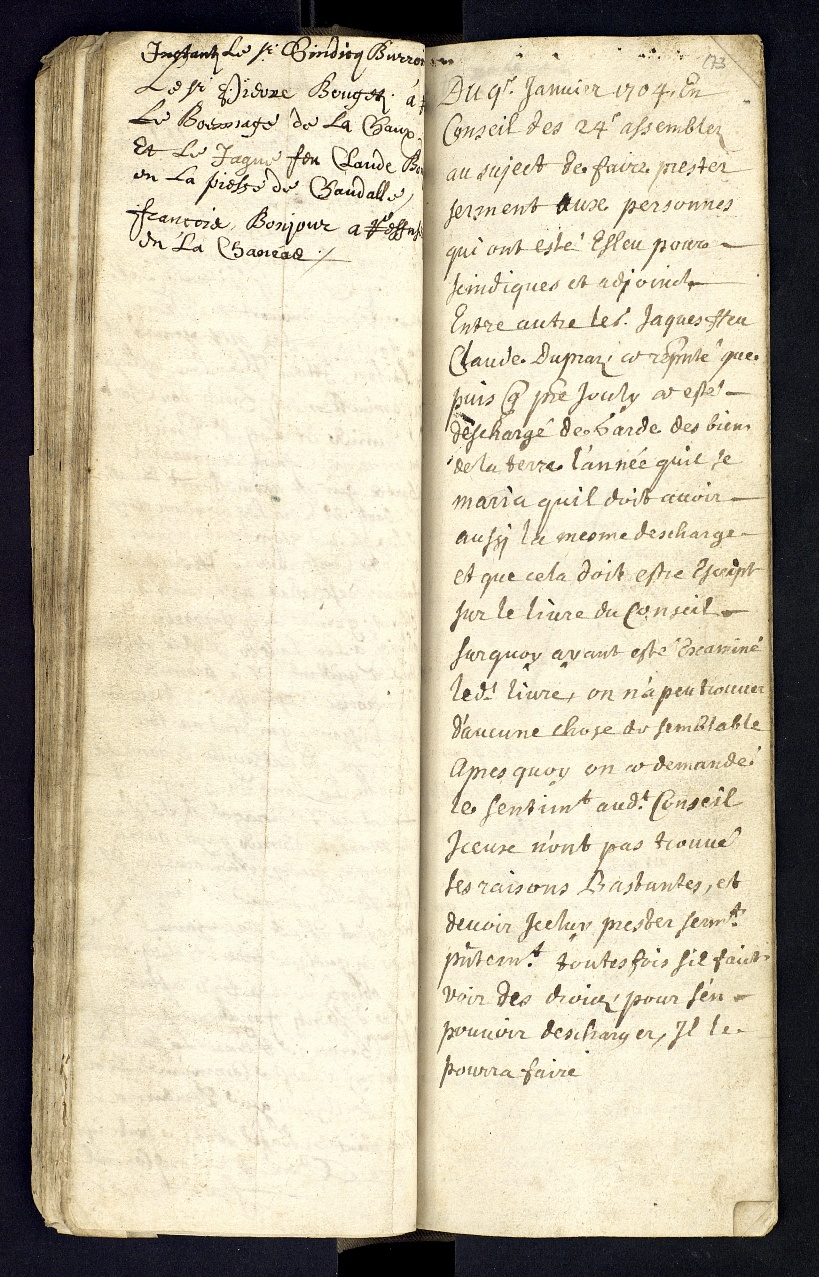 Instant Le sr. Sindicq Burro
Le sr Pierre Bouget, a
Le Boesnage de La Chaux.
Et Le Jaque feu Claude Bo
en La piesse de Chandalle,
françois, Bonjour a
en La
173
Du 9e. Janvier 1704. En
Conseil des 24e assembler
au suject de faire prester
serment aux personnes
qui ont esté Esleu pour
scindiques et adjoinct
Entre autre le s. Jaques ffeu
Claude Dupraz, a reputé que
puis q pre Jouly a esté
deschargé de Garde des biens
de la terre l'année quil se
maria quil doit avoir
aussj la mesme descharge
et que cela doit estre Escript
sur le livre du Conseil
surquoy ayant esté Examiné
led.t livre, on n'a peu trouver
d'aucune chose de semblable
apres quoy on a demandé
le sentimt aud.t Conseil
Jceux n'ont pas trouvé
ses raisons Bastantes, et
devoir Jceluy prester serm.t
pntem.t toutesfois s'il fait
voir des droicz pour s'en
pouvoir descharger, Jl le
pourra faire